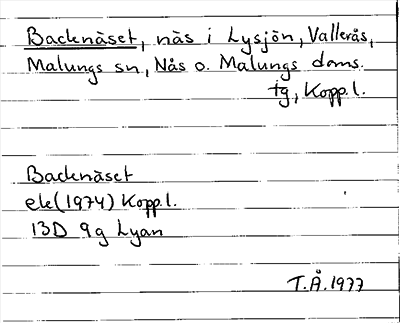 Backnäset, näs i Lysjön, Vallerås,
Malungs sn, Nås o. Malungs doms.
tg, Kopp.l.
Backnäset
ek(1974) Kopp.l.
13D 9g Lyan
T.Å.1977